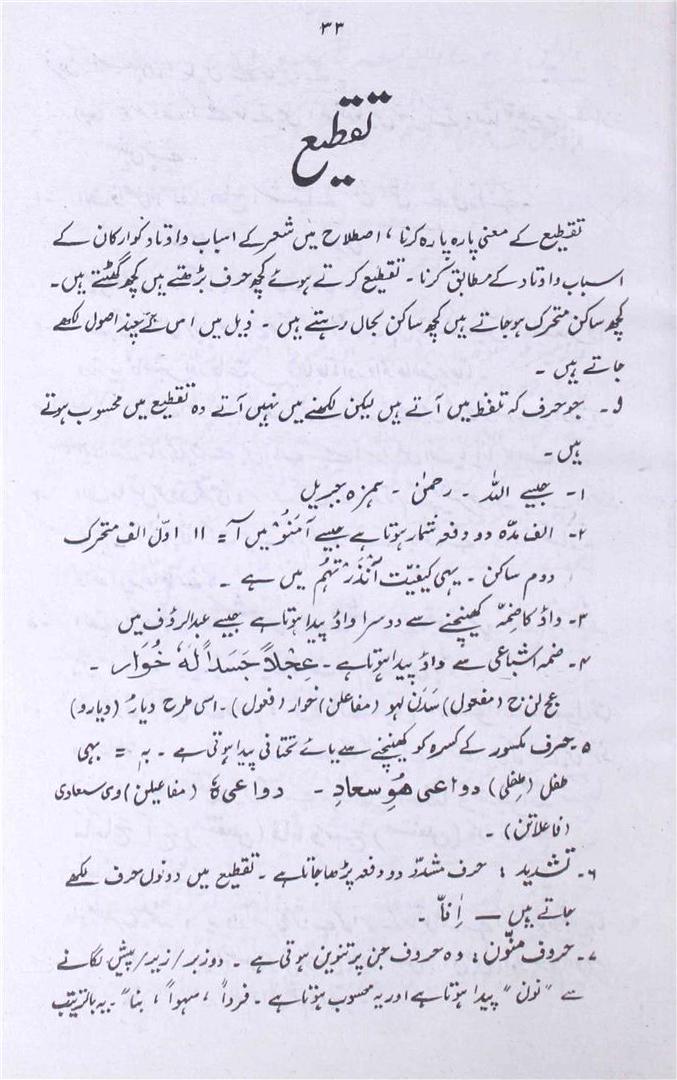 ۳۳
تقطیع
تقطیع کے معنی پارہ پارہ کرنا، اصطلاح میں شعر کے اسباب و اوتاد کو ارکان کے
اسباب و اوتاد کے مطابق کرنا۔ تقطیع کرتے ہوئے کچھ حرف بڑھتے ہیں کچھ گھٹتے ہیں۔
کچھ ساکن متحرک ہوجاتے ہیں کچھ ساکن بحال رہتے ہیں۔ ذیل میں اس کے چند اصول لکھے
جاتے ہیں۔
و۔ جو حرف کہ تلفظ میں آتے ہیں لیکن لکھنے میں نہیں آتے وہ تقطیع میں محسوب ہوتے
ہیں۔
۱۔ جیسے اللہ۔ رحمٰن۔ ہمزہ جبریل
۲۔ الف مدّہ دو دفعہ شمار ہوتا ہے جیسے آمَنُوْ میں آ = ۱۱ اوّل الف متحرک
دوم ساکن۔ یہی کیفیت أَنْذَرْتَہُم میں ہے۔
۳۔ واؤ کا ضمّہ کھینچنے سے دوسرا واؤ پیدا ہوتا ہے جیسے عبدالرؤف میں
۴۔ ضمہ اشباعی سے واؤ پیدا ہوتا ہے۔ عجْلاً جَسَداً لَہٗ خُوَار۔
عج لن ج (مفعول) سَدَن لہو (مفاعلن) خوار (فعول)۔ اسی طرح دیارُ (دیارو)
۵۔ حرف مکسور کے کسرہ کو کھینچنے سے یائے تحتانی پیدا ہوتی ہے۔ بہٖ = بہی
طفل (طِفلی) دواعی ھُو سعادِ۔ دواعی ہٗ (مفاعیلن) وی سعادی
(فاعلاتن)۔
۶۔ تشدید: حرف مشدّد دو دفعہ پڑھا جاتا ہے۔ تقطیع میں دونوں حرف لکھے
جاتے ہیں — اِنّا۔
۷۔ حروف منوّن: وہ حروف جن پر تنوین ہوتی ہے۔ دو زبر/زیر/پیش لگانے
سے "نون" پیدا ہوتا ہے اور یہ محسوب ہوتا ہے۔ فرداً، سہواً، بناً۔ یہ بالترتیب